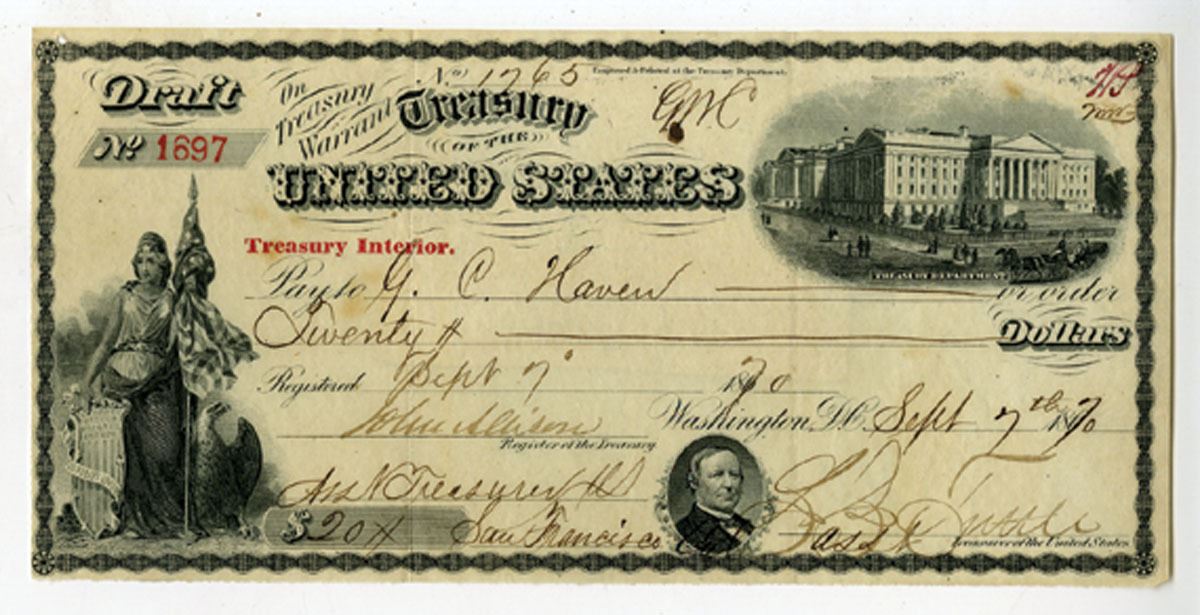 Draft
No 1697
On Treasury Warrant
No 1265
Engraved & Printed at the Treasury Department.
GMC
Treasury
OF THE
UNITED STATES
TREASURY DEPARTMENT
Treasury Interior.
Pay to G. C. Haven or order
Twenty Dollars
Registered Sept 7 1870
Washington, D.C. Sept 7th 1870
John Allison
Register of the Treasury
Asst Treasurer US
$20 San Francisco
Asst
Treasurer of the United States